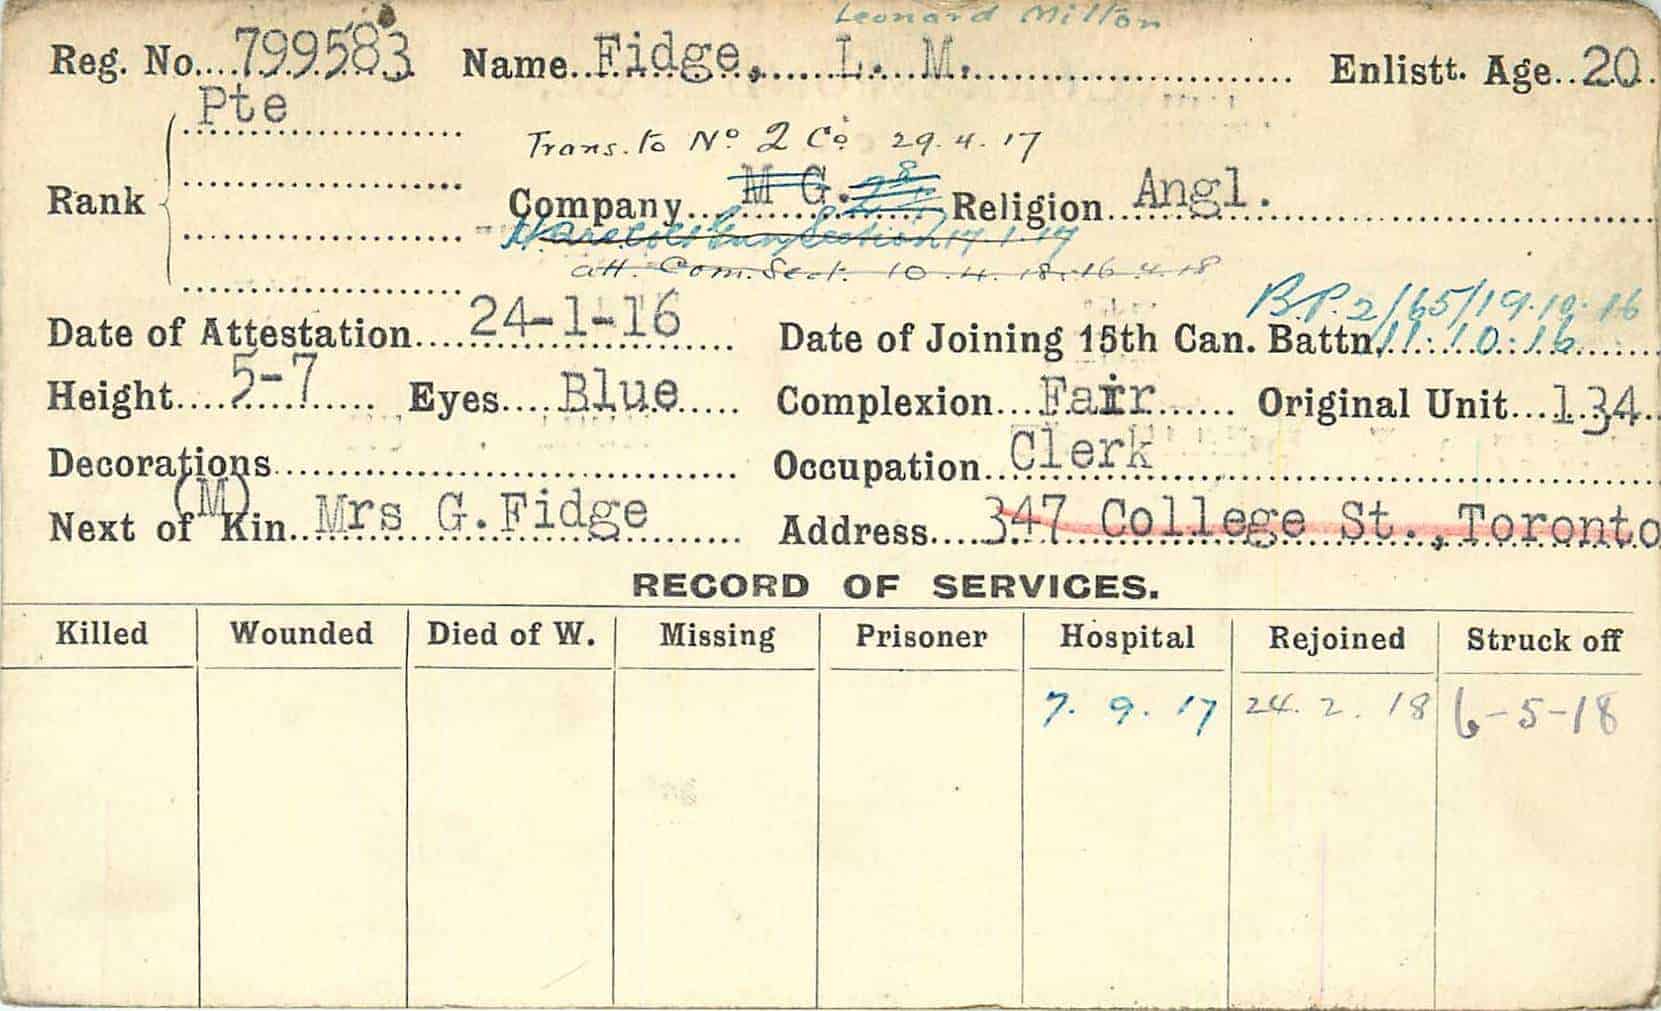 Leonard Milton
Reg. No. 799583 Name Fidge, L. M. Enlistt. Age 20
Pte
Trans. to No 2 Co 29.4.17
Rank Company M G. 28 Religion Angl.
Gun Section 17.1.17
att. Com. Sect. 10.4.18-16.4.18
B.P.2/65/19.10.16
Date of Attestation 24-1-16 Date of Joining 15th Can. Battn. 11.10.16
Height 5-7 Eyes Blue Complexion Fair Original Unit 134
Decorations Occupation Clerk
(M)
Next of Kin Mrs G. Fidge Address 347 College St., Toronto
RECORD OF SERVICES.
Killed Wounded Died of W. Missing Prisoner Hospital Rejoined Struck off
7.9.17 24.2.18 6-5-18